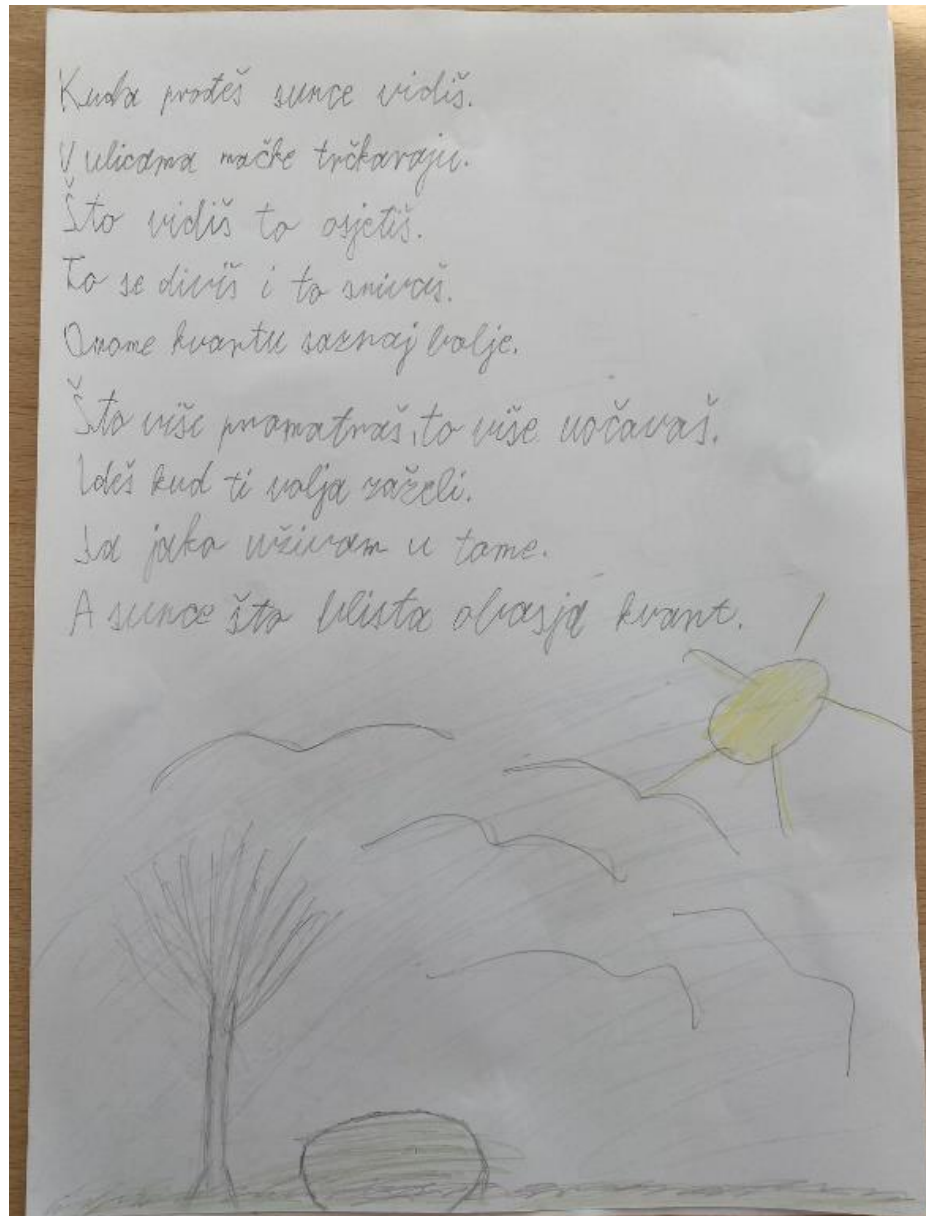 Kuda prođeš sunce vidiš.
U ulicama mačke trčkaraju.
Što vidiš to osjetiš.
To se diviš i to snivaš.
Onome kvantu saznaj bolje.
Što više promatraš, to više uočavaš.
Ideš kud ti volja zaželi.
Ja jako uživam u tome.
A sunce što blista obasja kvant.